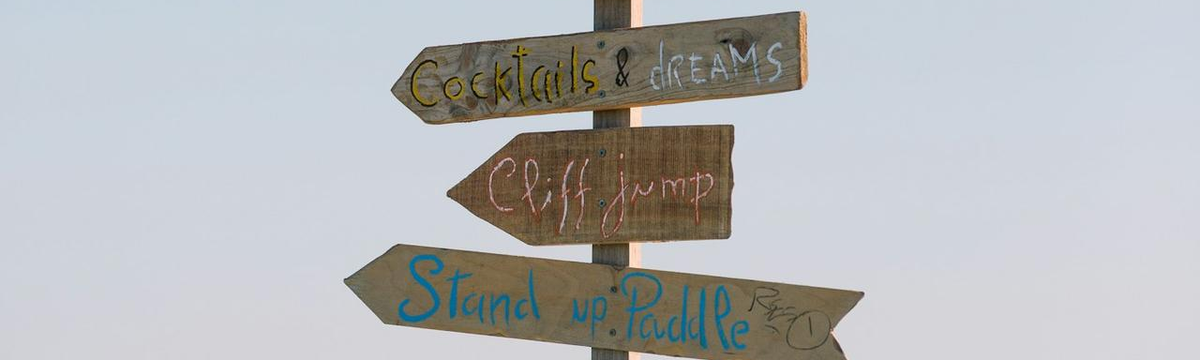 Cocktails & dREAMS
Cliff jump
Stand up Paddle